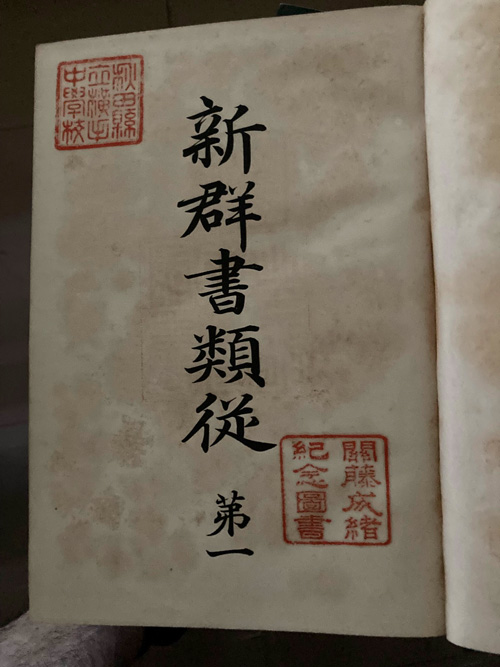 秋田縣
立横手
中學校
新群書類從
第一
關藤成緒
紀念圖書